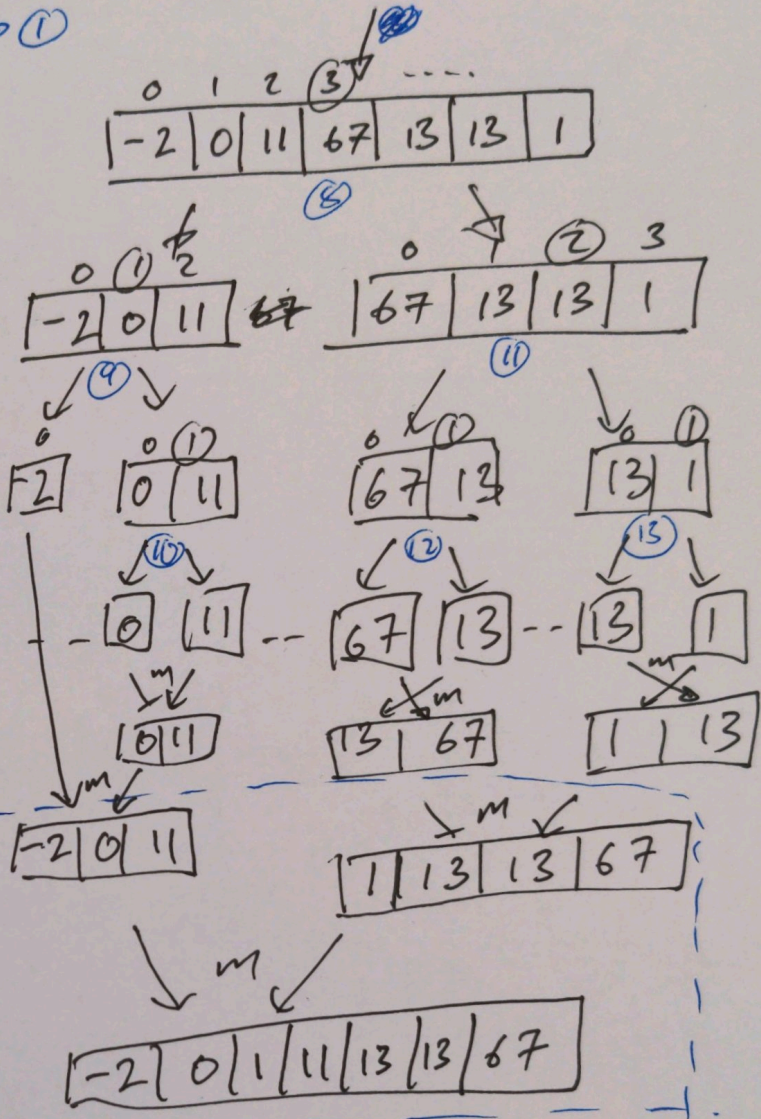 ①
0 1 2 ③ .....
-2 0 11 67 13 13 1
⑧
0 ① 2 0 1 ② 3
-2 0 11 67 67 13 13 1
⑨ ⑪
0 0 ① 0 ① 0 ①
-2 0 11 67 13 13 1
⑩ ⑫ ⑬
0 11 67 13 13 1
m m m
0 11 13 67 1 13
m m
-2 0 11 1 13 13 67
m
-2 0 1 11 13 13 67